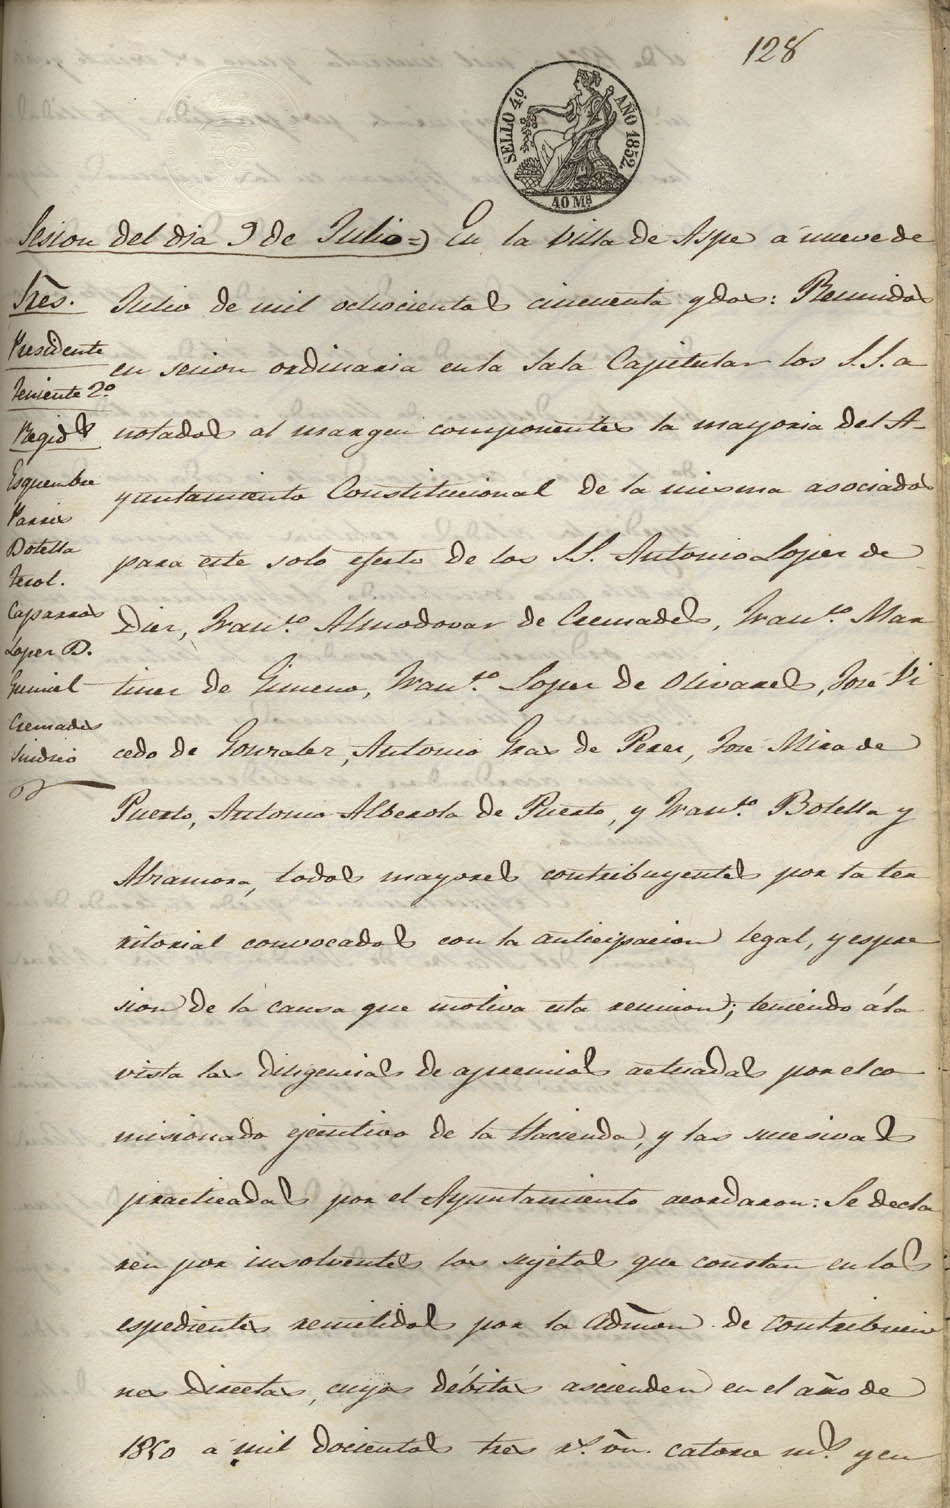 128
SELLO 4º AÑO 1852.
40 Ms
Sesion del dia 9 de Julio =) En la Villa de Aspe á nueve de
Sres.
Presidente
Teniente 2º
Regids
Esquembre
Parres
Botella
Terol.
Caparros
Lopez D.
Cremades
Sindico
Julio de mil ochocientos cincuenta y dos: Reunidos
en sesion ordinaria en la Sala Capitular los S.S. a
notados al margen componentes la mayoria del A-
yuntamiento Constitucional de la misma asociados
para este solo efecto de los S.S. Antonio Lopez de
Diez, Franco. Almodovar de Cremades, Franco. Mar
tinez de Gimeno, Franco. Lopez de Olivares, José Vi
cedo de Gonzalez, Antonio Gras de Perez, Jose Mira de
Puerto, Antonio Alberola de Puerto, y Franco. Botella y
Abramora, todos mayores contribuyentes por la ter
ritorial convocados con la anticipacion legal, y espre
sion de la causa que motiva esta reunion; teniendo á la
vista las diligencias de apremios actuadas por el co
misionado ejecutivo de la Hacienda, y las sucesivas
practicadas por el Ayuntamiento acordaron: Se decla
ren por insolventes los sujetos que constan en los
espedientes remitidos por la Admon. de Contribucio
nes Directas, cuyos débitos ascienden en el año de
1850 á mil docientos tres rs. vn. catorce ms. y en